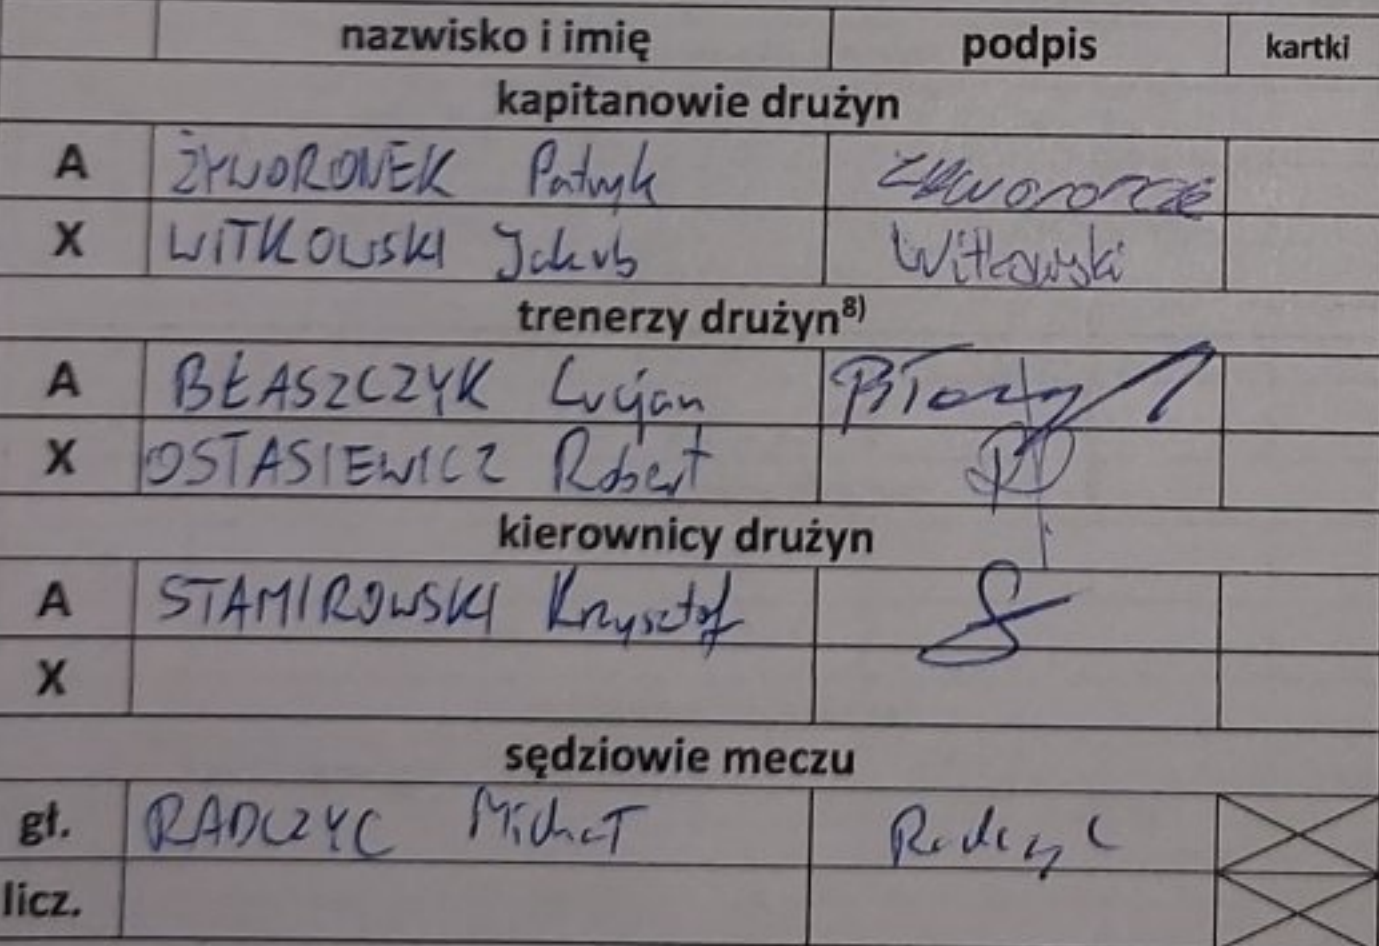 nazwisko i imię podpis kartki
kapitanowie drużyn
A ŻYWORONEK Patryk
X WITKOWSKI Jakub Witkowski
trenerzy drużyn⁸⁾
A BŁASZCZYK Lucjan
X OSTASIEWICZ Robert
kierownicy drużyn
A STAMIROWSKI Krzysztof
X
sędziowie meczu
gł. RADCZYC Michał Radczyc
licz.